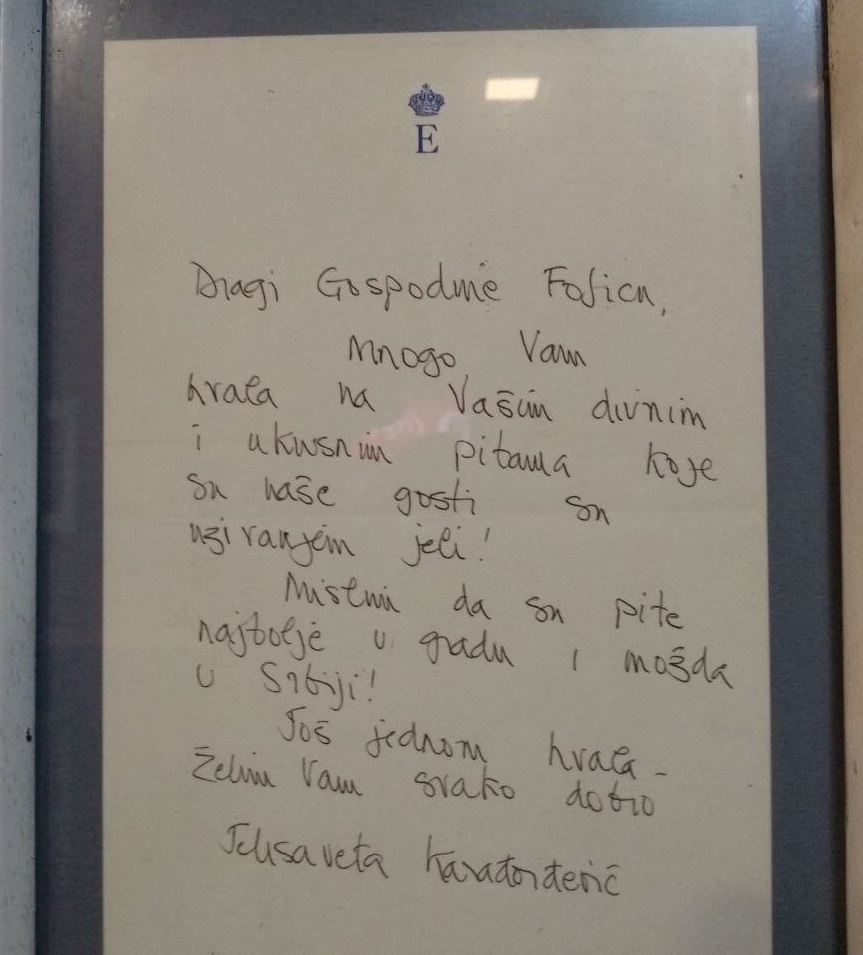 E
Dragi Gospodine Fošicu,
Mnogo Vam
hvala na Vašim divnim
i ukusnim pitama koje
su naše gosti su
uživanjem jeli!
Mislim da su pite
najbolje u gradu i možda
u Srbiji!
Još jednom hvala -
Želim Vam svako dobro
Jelisaveta Karađorđević